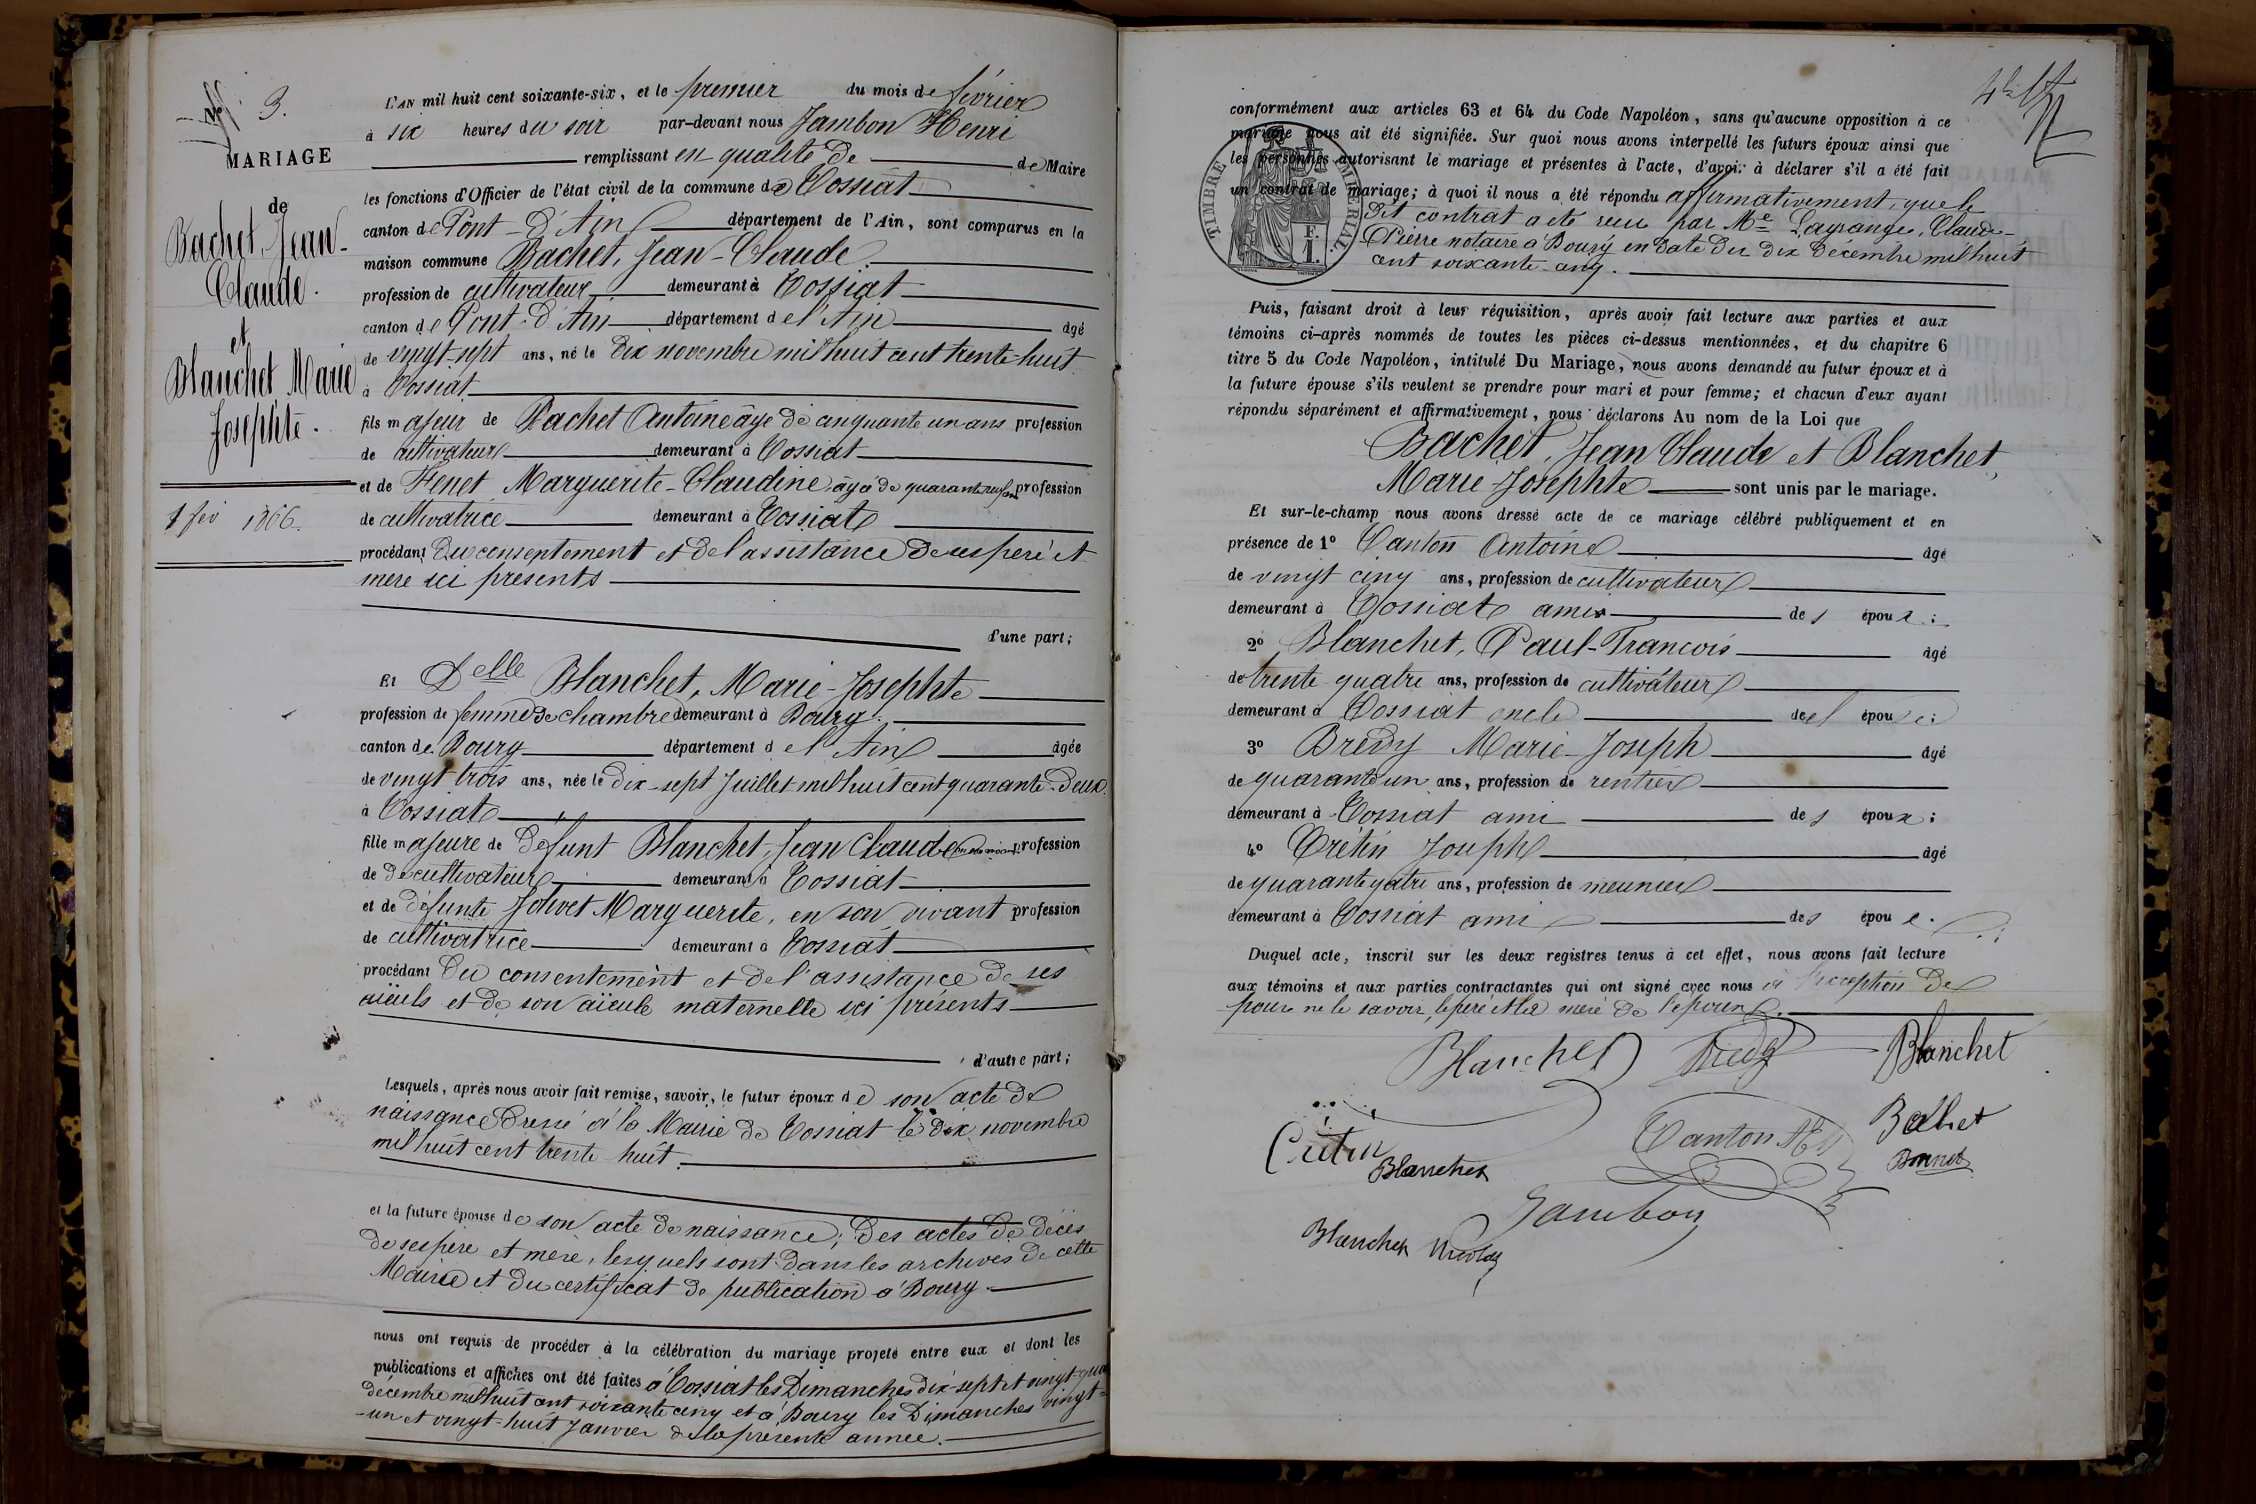 N° 3.
MARIAGE
de
Bachet, Jean-
Claude.
et
Blanchet Marie
Josephte.
1 fev 1866.
L'AN mil huit cent soixante-six, et le premier du mois de février
à six heures du soir par-devant nous Jambon Henri
remplissant en qualité de de Maire
les fonctions d'Officier de l'état civil de la commune de Tossiat
canton de Pont-d'Ain département de l'Ain, sont comparus en la
maison commune Bachet, Jean-Claude.
profession de cultivateur demeurant à Tossiat
canton de Pont-d'Ain département de l'Ain âgé
de vingt-sept ans, né le dix novembre mil huit cent trente-huit
à Tossiat
fils majeur de Bachet Antoine âgé de cinquante un ans profession
de cultivateur demeurant à Tossiat
et de Fenet Marguerite-Claudine âgé de quarante profession
de cultivatrice demeurant à Tossiat
procédant du consentement et de l'assistance de ses pere et
mere ici présents
d'une part;
Et Delle Blanchet, Marie-Josephte
profession de femme de chambre demeurant à Bourg.
canton de Bourg département de l'Ain âgée
de vingt trois ans, née le dix-sept Juillet mil huit cent quarante-deux.
à Tossiat
fille majeure de défunt Blanchet, Jean Claude profession
de de cultivateur demeurant à Tossiat
et de défunte Jolivet Marguerite, en son vivant profession
de cultivatrice demeurant à Tossiat
procédant du consentement et de l'assistance de ses
aïeuls et de son aïeule maternelle ici présents
d'autre part;
Lesquels, après nous avoir fait remise, savoir, le futur époux de son acte de
naissance dressé à la Mairie de Tossiat le dix novembre
mil huit cent trente-huit.
et la future épouse de son acte de naissance; des actes de décès
de ses père et mère, lesquels sont dans les archives de cette
Mairie et du certificat de publication à Bourg.
nous ont requis de procéder à la célébration du mariage projeté entre eux et dont les
publications et affiches ont été faites à Tossiat les Dimanches dix-sept et vingt-quatre
décembre mil huit cent soixante cinq et à Bourg les Dimanches vingt-
-un et vingt-huit Janvier de la présente année.
conformément aux articles 63 et 64 du Code Napoléon, sans qu'aucune opposition à ce
mariage nous ait été signifiée. Sur quoi nous avons interpellé les futurs époux ainsi que
les personnes autorisant le mariage et présentes à l'acte, d'avoir à déclarer s'il a été fait
un contrat de mariage; à quoi il nous a été répondu affirmativement, que le
dit contrat a été reçu par Me Lagrange, Claude-
Pierre notaire à Bourg en date du dix Décembre mil huit
cent soixante-cinq.
TIMBRE IMPERIAL
F.
1.
Puis, faisant droit à leur réquisition, après avoir fait lecture aux parties et aux
témoins ci-après nommés de toutes les pièces ci-dessus mentionnées, et du chapitre 6
titre 5 du Code Napoléon, intitulé Du Mariage, nous avons demandé au futur époux et à
la future épouse s'ils veulent se prendre pour mari et pour femme; et chacun d'eux ayant
répondu séparément et affirmativement, nous déclarons Au nom de la Loi que
Bachet, Jean Claude et Blanchet,
Marie-Josephte sont unis par le mariage.
Et sur-le-champ nous avons dressé acte de ce mariage célébré publiquement et en
présence de 1° Canton Antoine âgé
de vingt cinq ans, profession de cultivateur
demeurant à Tossiat ami des époux;
2° Blanchet, Paul-François âgé
de trente quatre ans, profession de cultivateur
demeurant à Tossiat oncle de l'épouse;
3° Bredy Marie-Joseph âgé
de quarante un ans, profession de rentier
demeurant à Tossiat ami des époux;
4° Crétin Joseph âgé
de quarante quatre ans, profession de meunier
demeurant à Tossiat ami des époux.
Duquel acte, inscrit sur les deux registres tenus à cet effet, nous avons fait lecture
aux témoins et aux parties contractantes qui ont signé avec nous à l'exception de
pour ne le savoir, le père et la mère de l'époux.
Blanchet Bredy Blanchet
Crétin Blanchet Canton Bachet
Bonnet
Jambon
Blanchet Nicolas